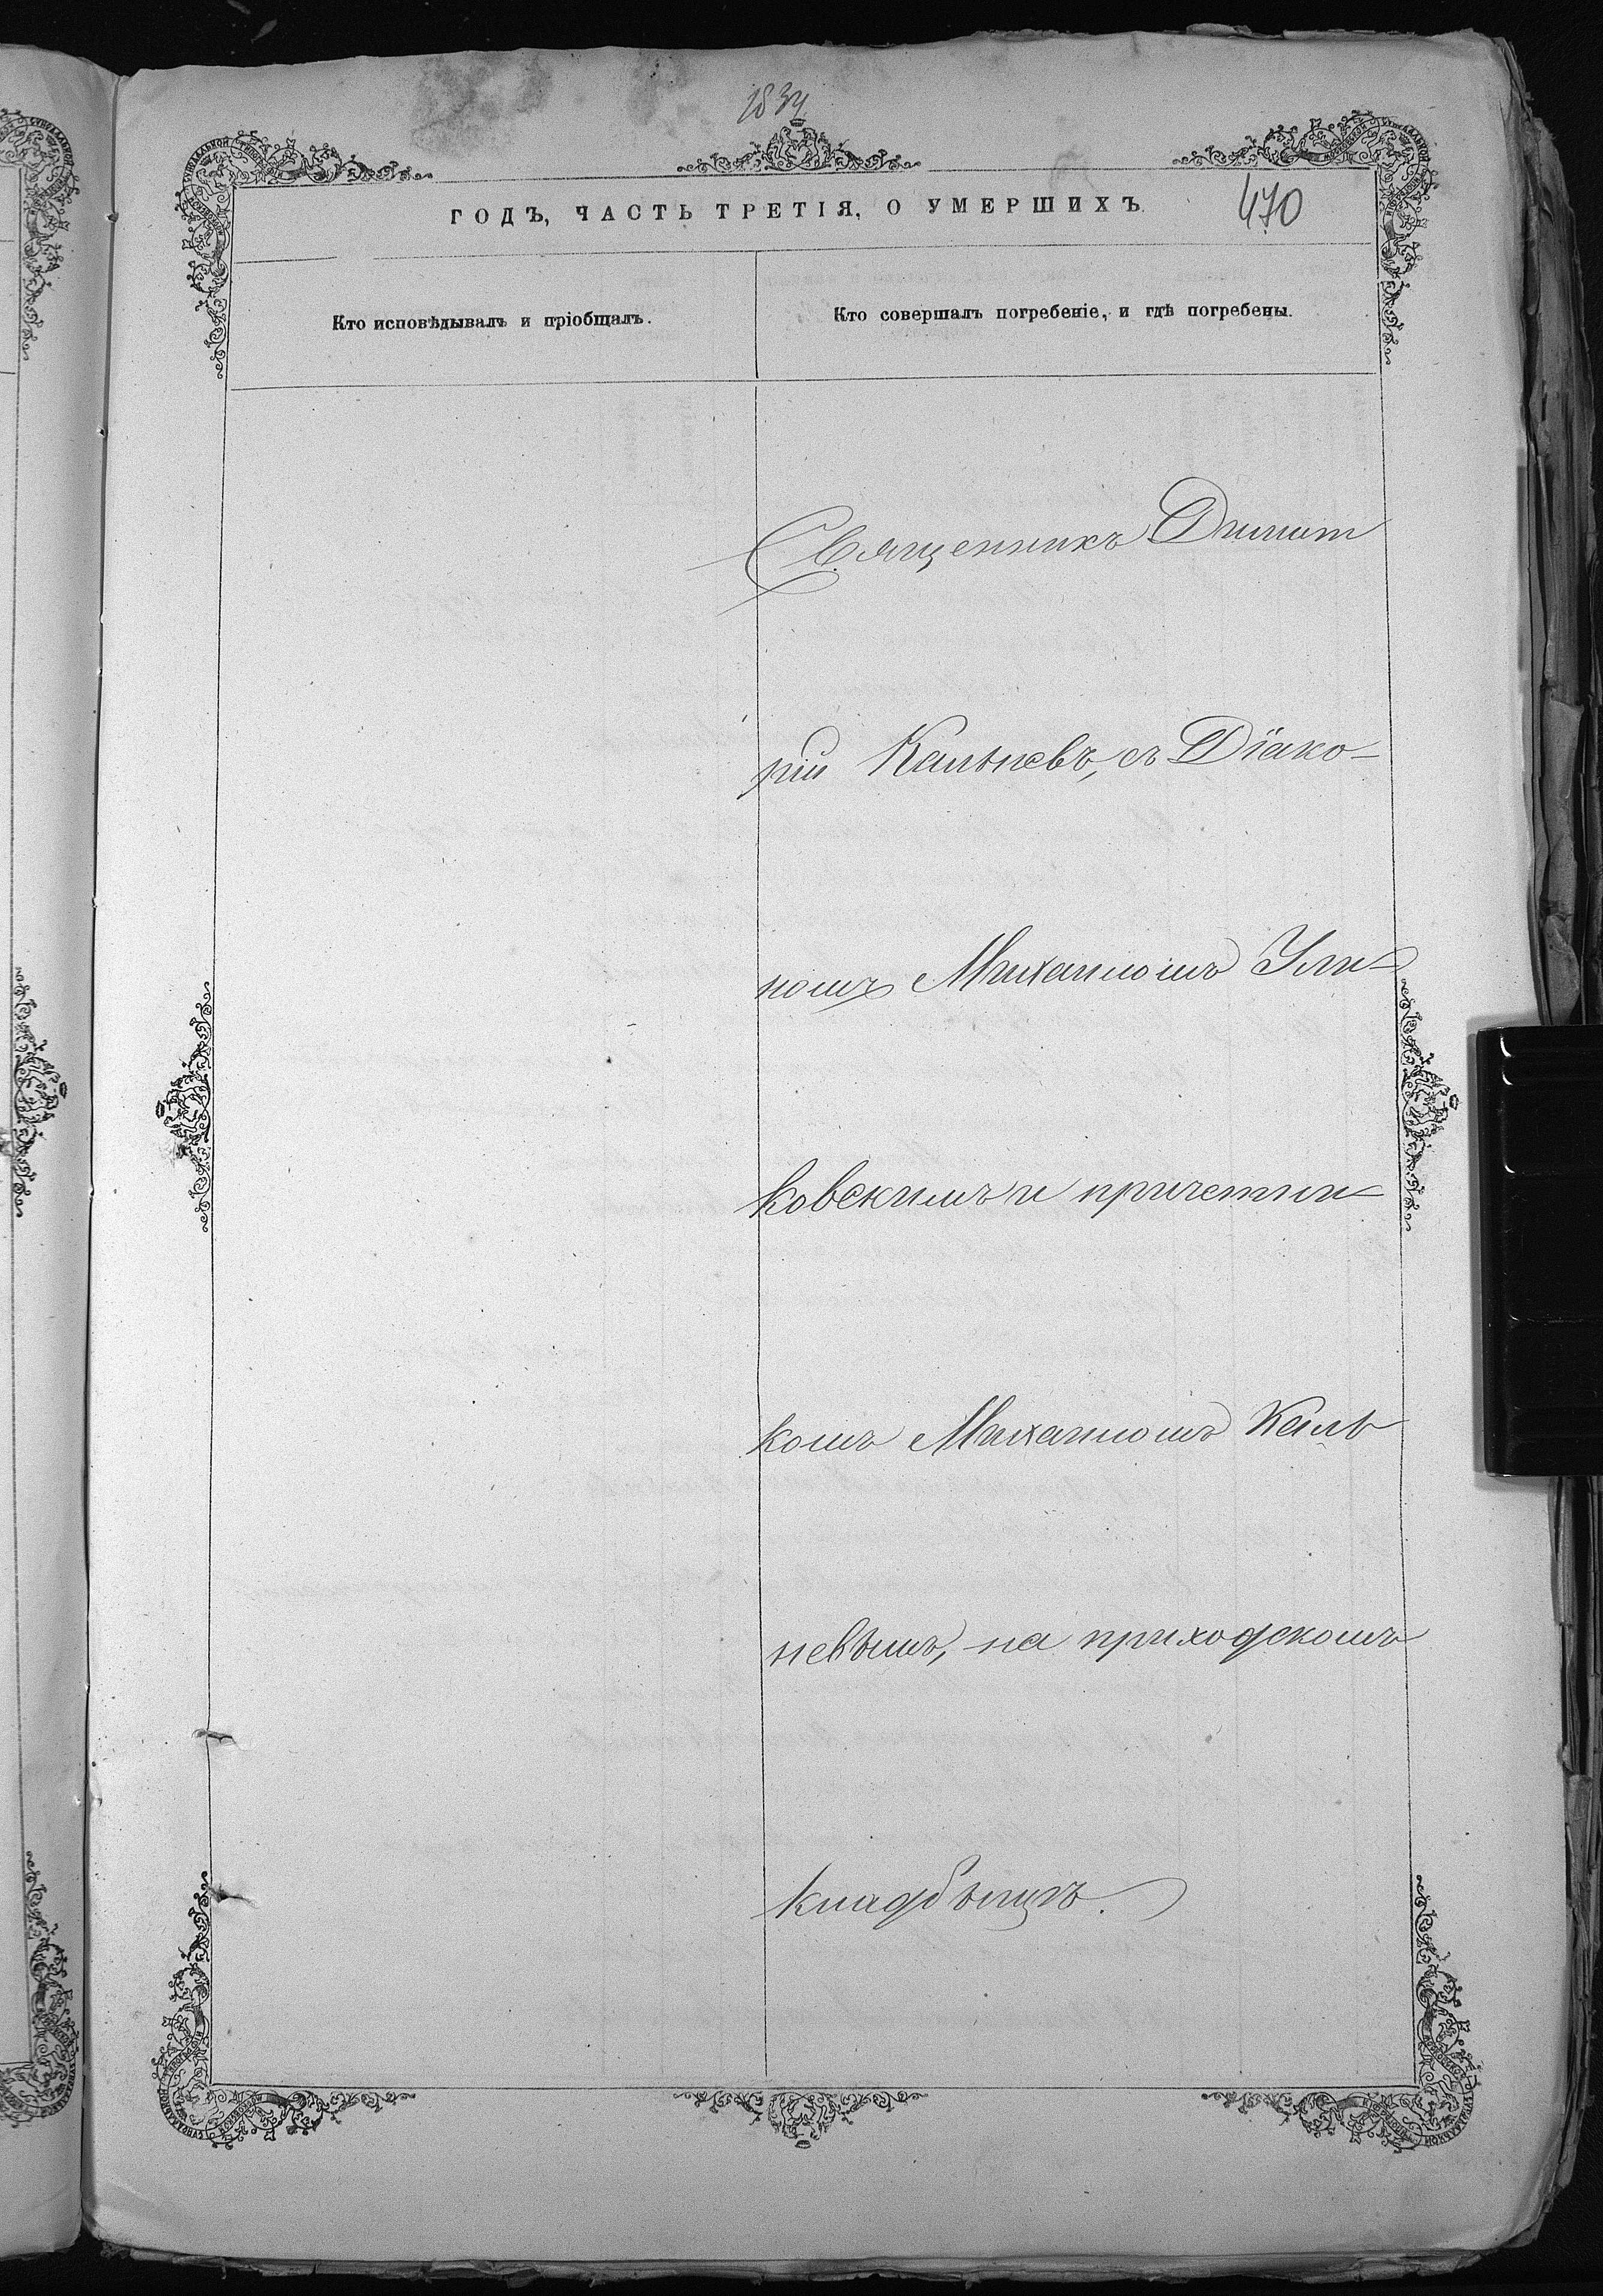 470
ГОДЪ, ЧАСТЬ ТРЕТІЯ, О УМЕРШИХЪ.
Кто исповѣдывалъ и пріобщалъ.
Кто совершалъ погребеніе, и гдѣ погребены.
Священникъ Димит
рій Кальневъ, съ Діако-
номъ Михаиломъ Ули-
ковскимъ и причетни-
комъ Михаиломъ Каль
невымъ, на приходскомъ
кладбыщѣ.